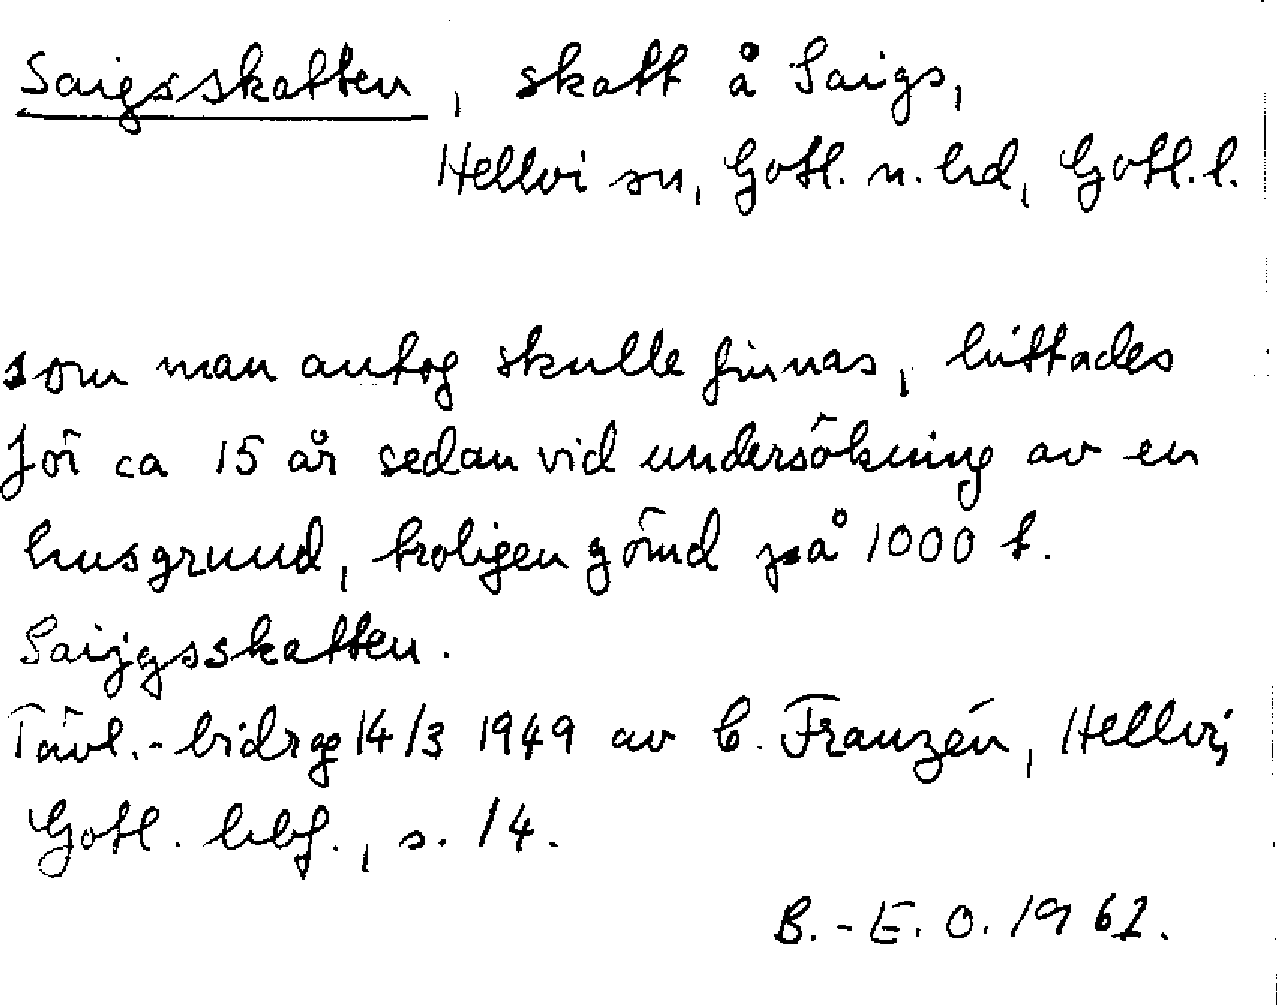 Saigsskatten, skatt å Saigs,
Hellvi sn, Gotl. n. hd, Gotl. l.
som man antog skulle finnas, hittades
för ca 15 år sedan vid undersökning av en
husgrund, troligen gömd på 1000 t.
Saijgsskatten.
Tävl.-bidrag 14/3 1949 av C. Franzén, Hellvi,
Gotl. hbf., s. 14.
B.-E. O. 1962.